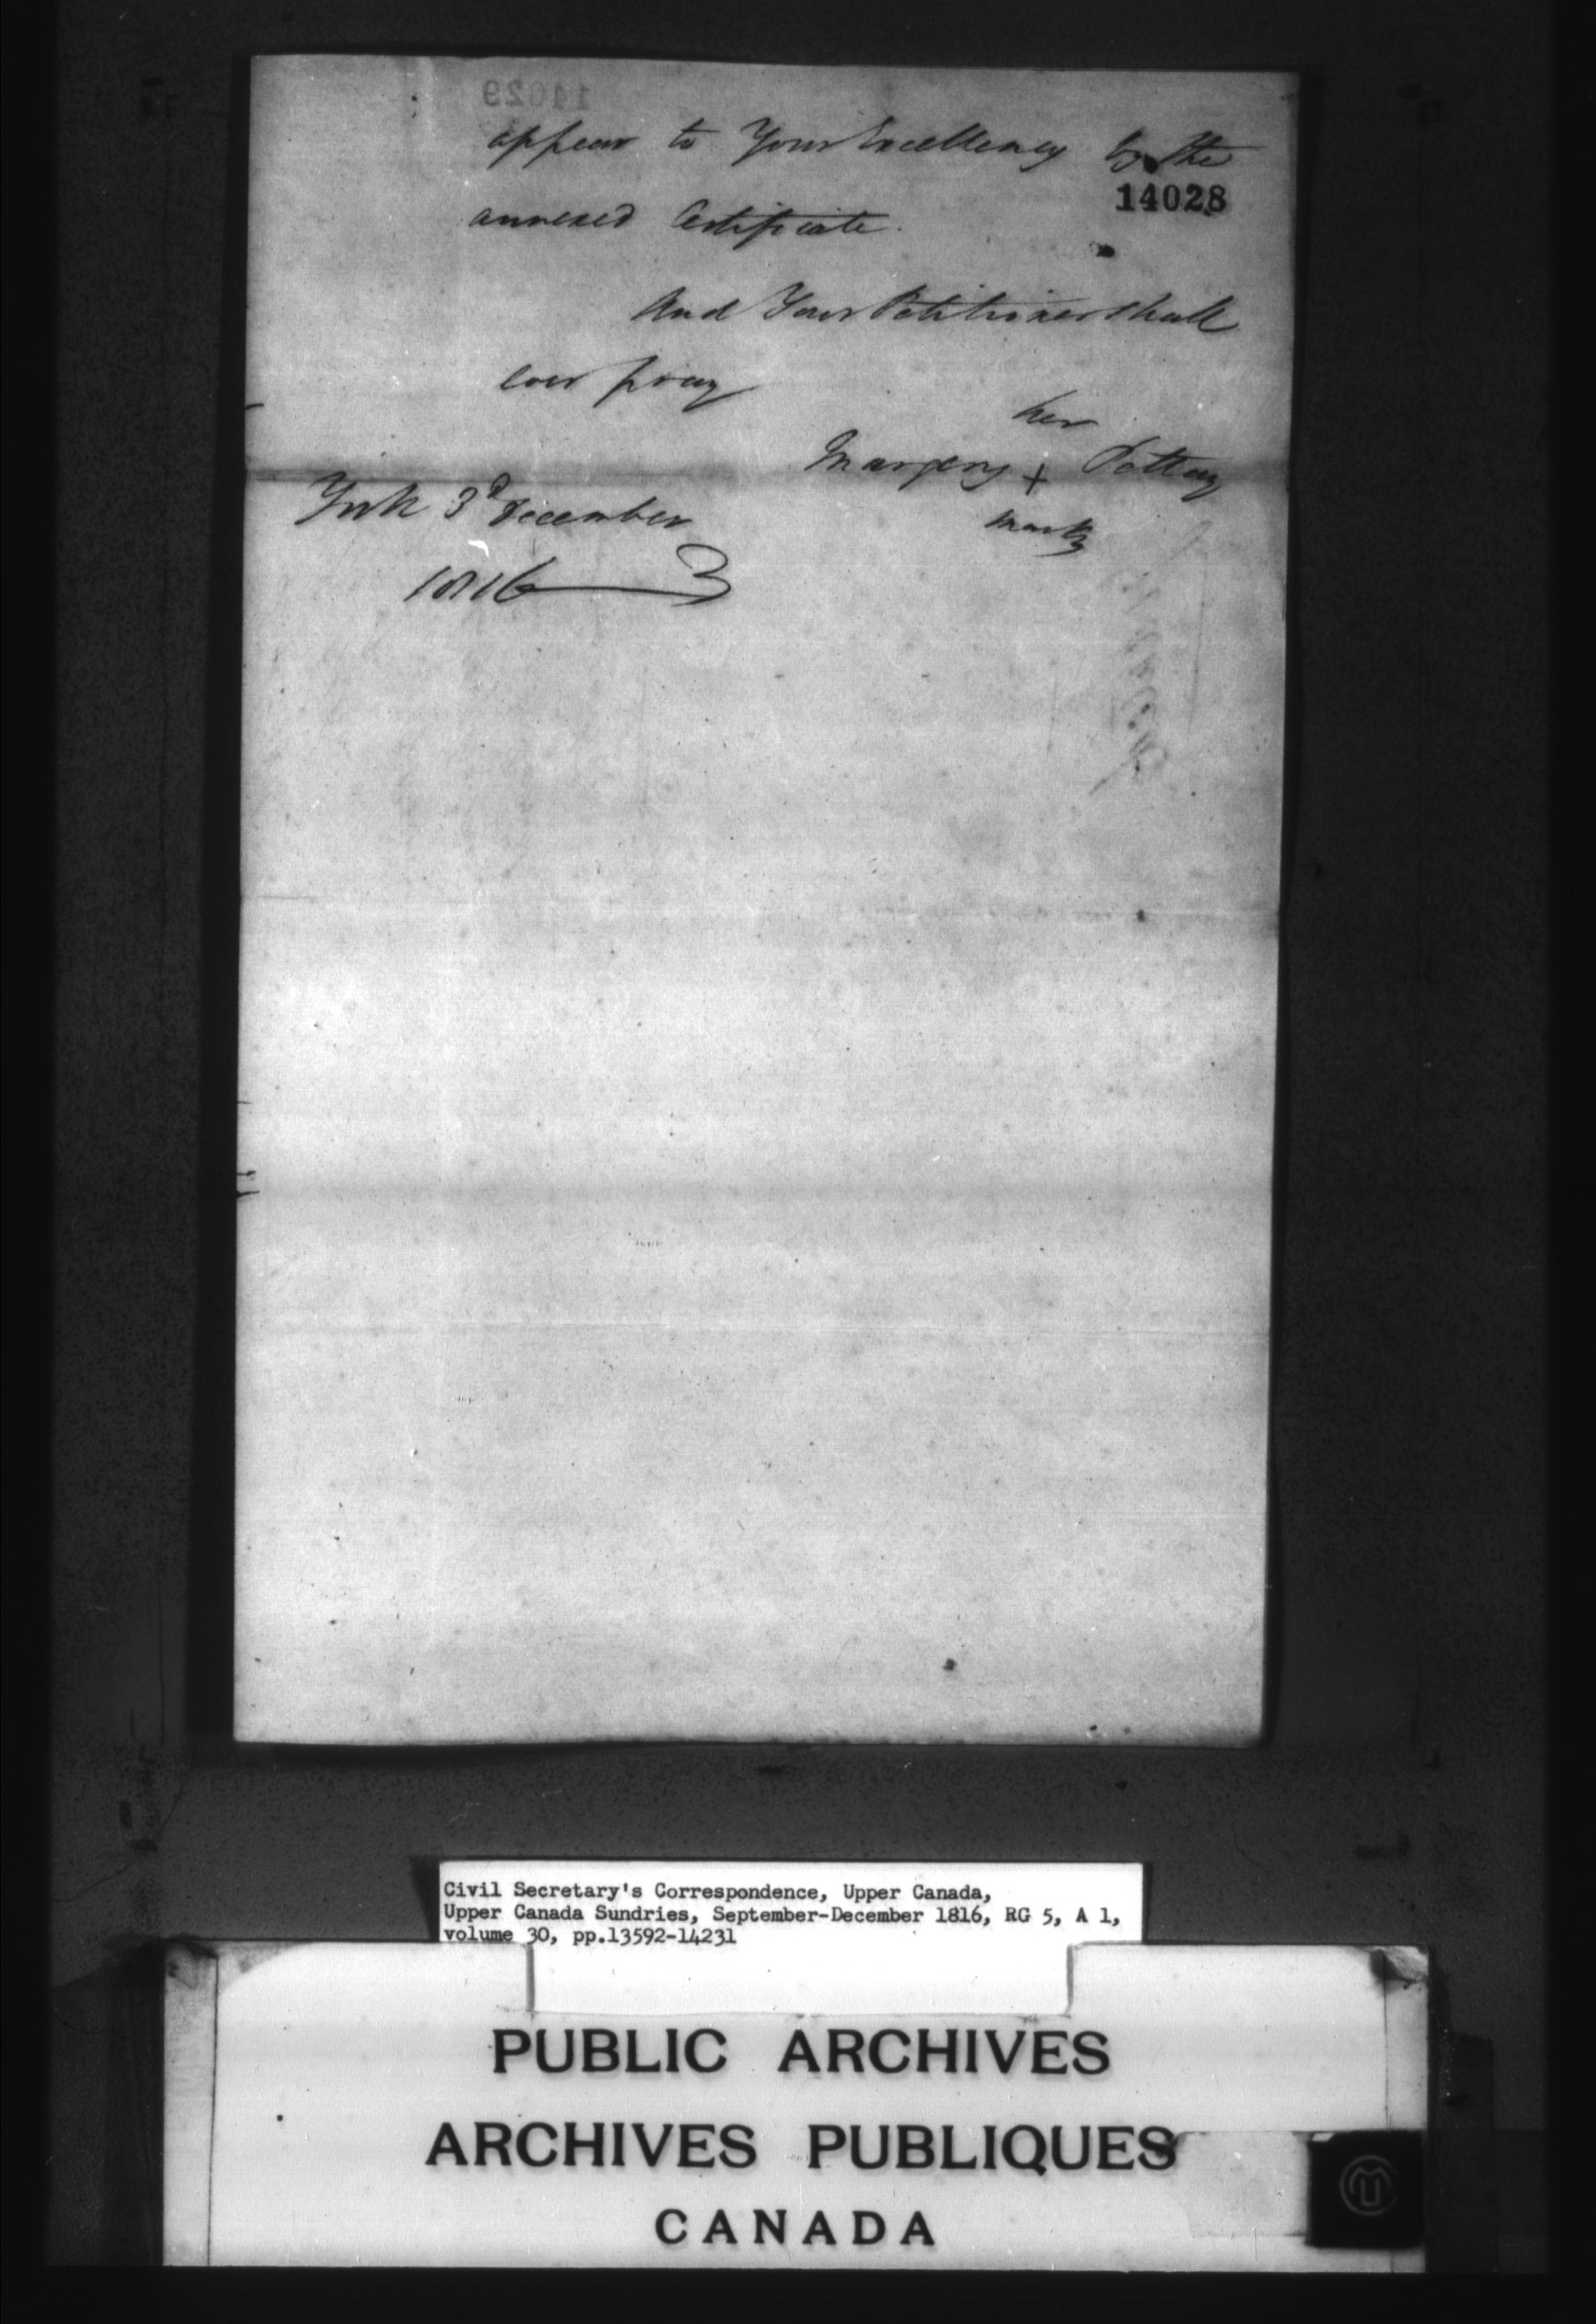 appear to Your Excellency by the
14028
annexed Certificate.
And Your Petitioner shall
ever pray
her
Margery + Pottery
mark
York 3d December
1816
Civil Secretary's Correspondence, Upper Canada,
Upper Canada Sundries, September-December 1816, RG 5, A 1,
volume 30, pp.13592-14231
PUBLIC ARCHIVES
ARCHIVES PUBLIQUES
CANADA